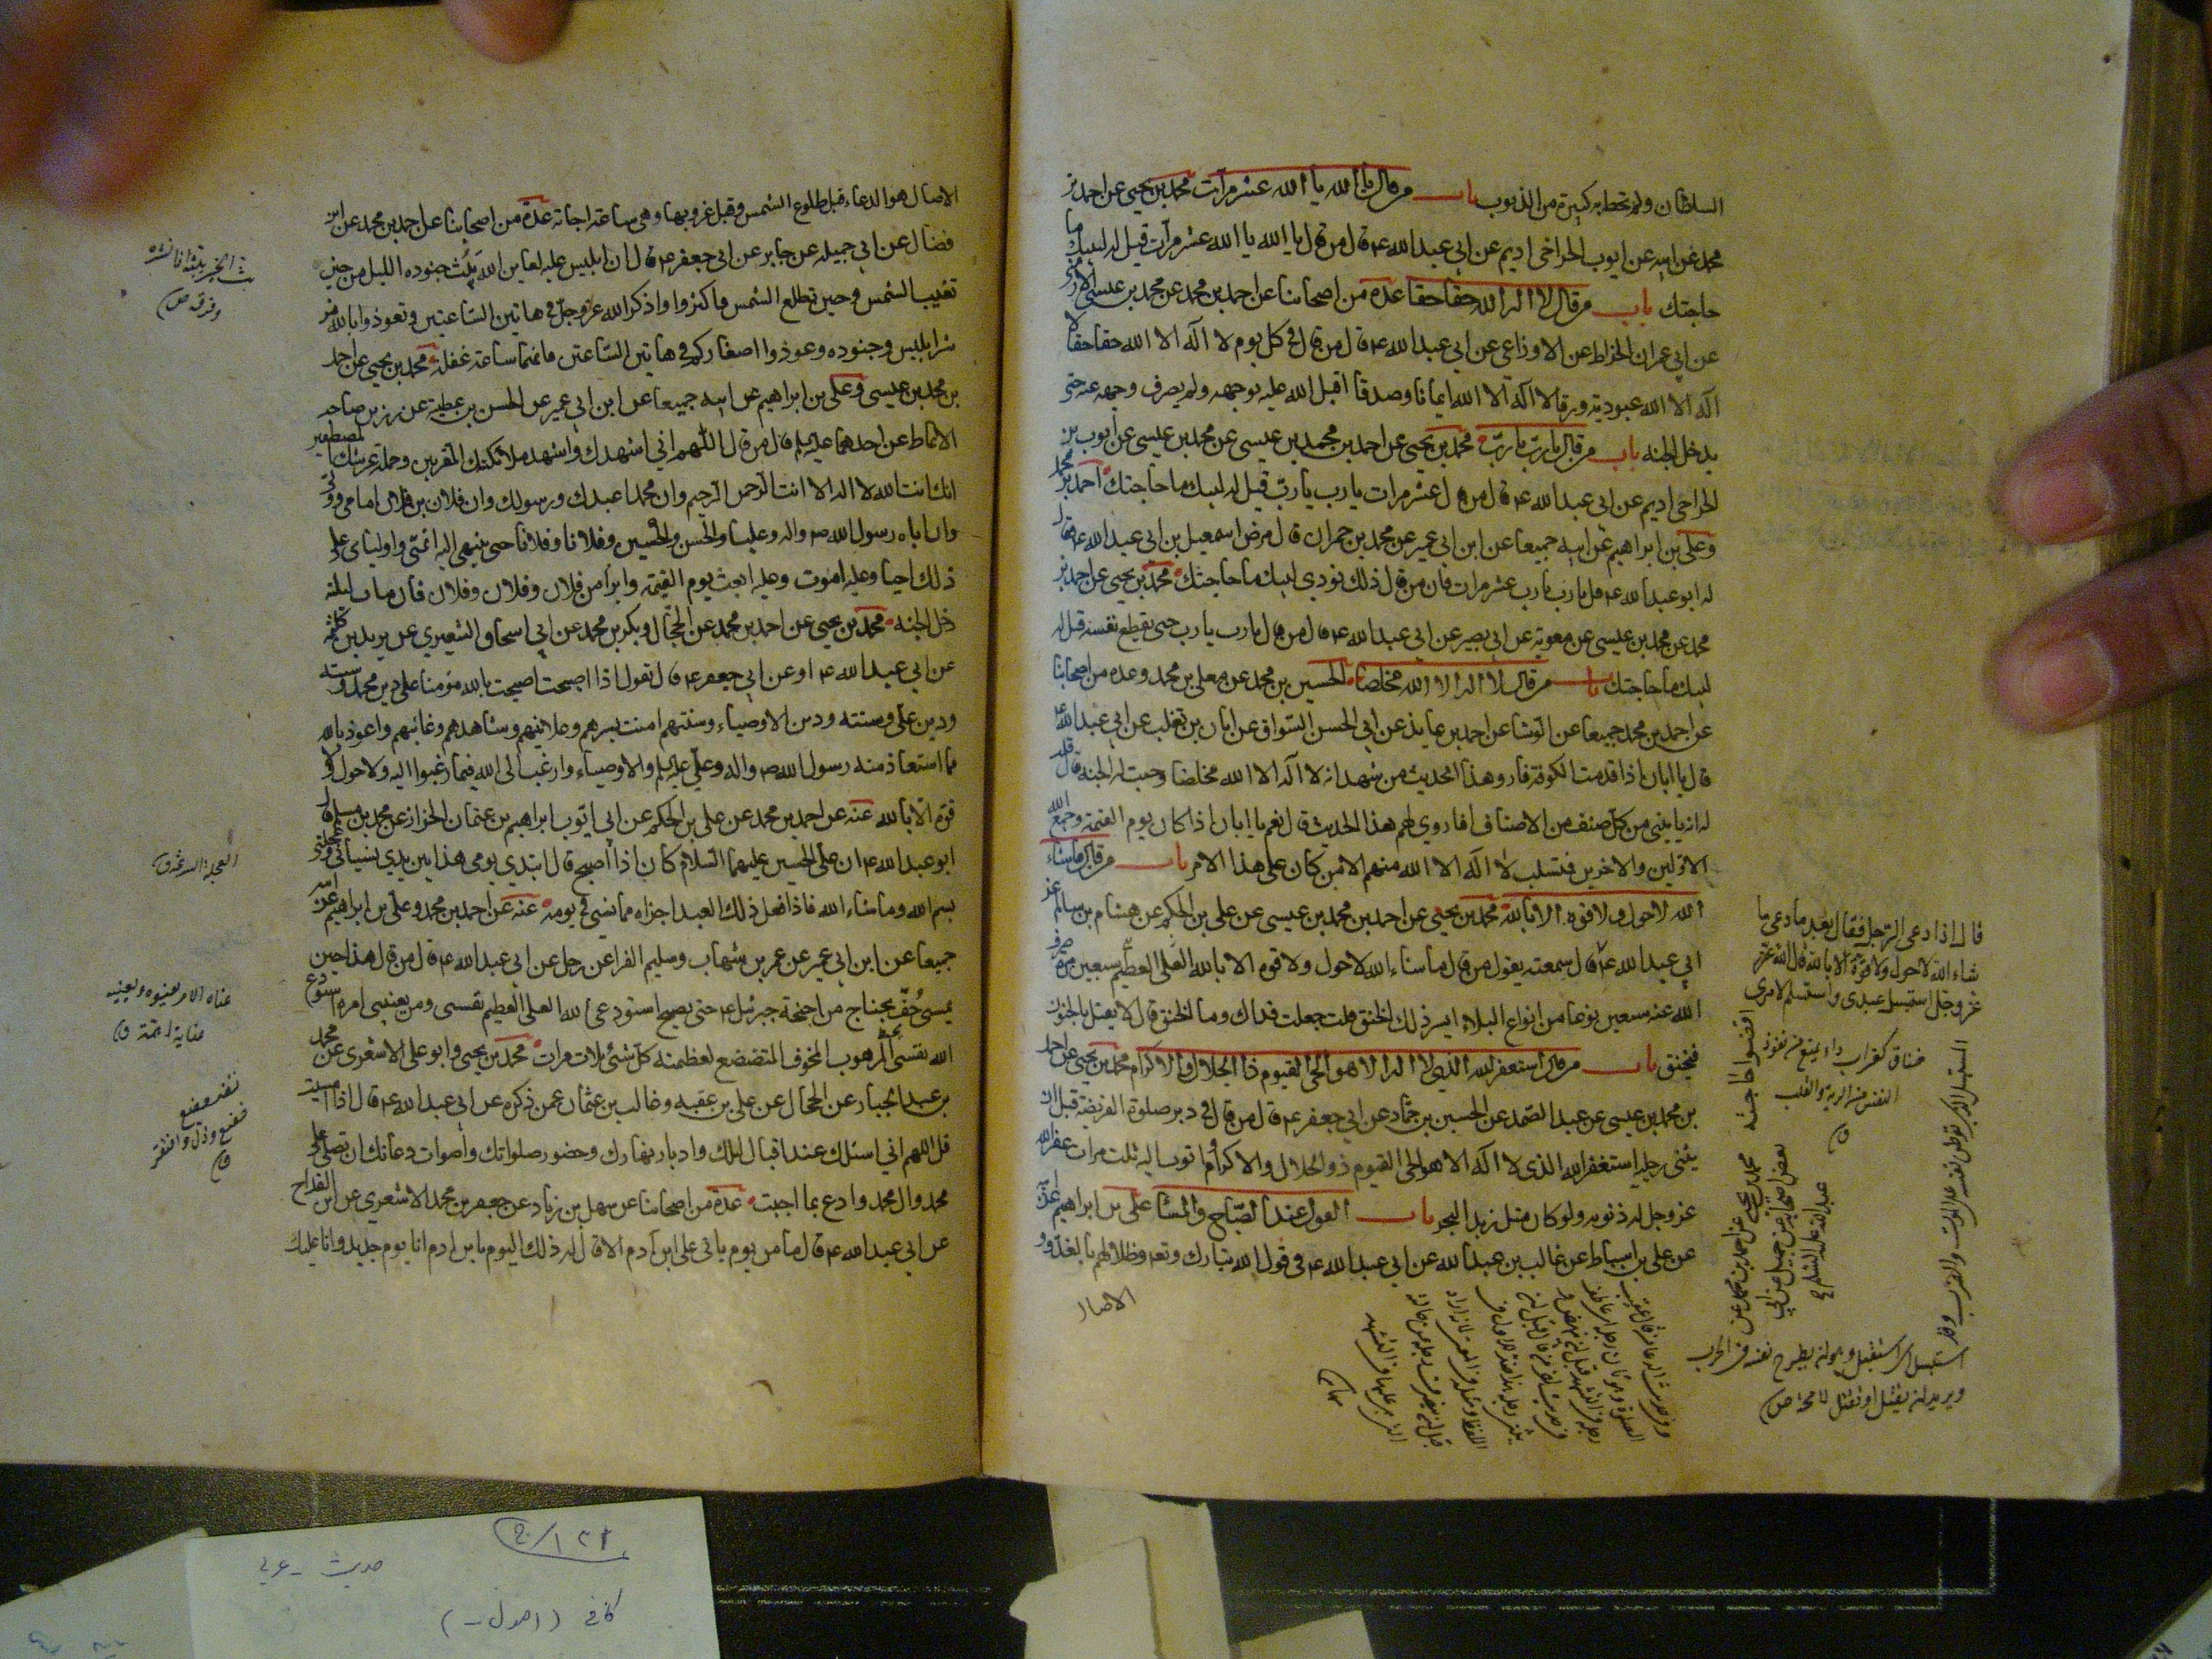 السلطان ولم تحط به كبيرة من الذنوب باب من قال يا الله يا الله عشر مرات محمد بن يحيى عن احمد بن
محمد عن ابيه عن ايوب الحر اخى اديم عن ابي عبد الله ع قال من قال يا الله يا الله عشر مرات قيل له لبيك ما
حاجتك باب من قال لا اله الا الله حقا حقا عدة من اصحابنا عن احمد بن محمد عن محمد بن عيسى الارمنى
عن ابي عمران الخراط عن الاوزاعي عن ابي عبد الله ع قال من قال في كل يوم لا اله الا الله حقا حقا لا
اله الا الله عبودية ورقا لا اله الا الله ايمانا وصدقا اقبل الله عليه بوجهه ولم يصرف وجهه عنه حتى
يدخل الجنه باب من قال يا رب يا رب محمد بن يحيى عن احمد بن محمد بن عيسى عن محمد بن عيسى عن ايوب بن
الحر اخى اديم عن ابي عبد الله ع قال من قال عشر مرات يا رب يا رب قيل له لبيك ما حاجتك احمد بن محمد
وعلي بن ابراهيم عن ابيه جميعا عن ابن ابي عمير عن محمد بن حمران قال مرض اسمعيل بن ابي عبد الله ع فقال
له ابو عبد الله ع قل يا رب يا رب عشر مرات فان من قال ذلك نودي لبيك ما حاجتك محمد بن يحيى عن احمد بن
محمد عن محمد بن عيسى عن معوية عن ابي بصير عن ابي عبد الله ع قال من قال يا رب يا رب حتى يقطع نفسه قيل له
لبيك ما حاجتك باب من قال لا اله الا الله مخلصا الحسين بن محمد عن معلى بن محمد وعدة من اصحابنا
عن احمد بن محمد جميعا عن الوشا عن احمد بن عايذ عن ابي الحسن السواق عن ابان بن تغلب عن ابي عبد الله ع
قال يا ابان اذا قدمت الكوفة فارو هذا الحديث من شهد ان لا اله الا الله مخلصا وجبت له الجنه قال قلت
له انه ياتيني من كل صنف من الاصناف افاروي لهم هذا الحديث قال نعم يا ابان اذا كان يوم القيمة وجمع الله
الاولين والاخرين فتسلب لا اله الا الله منهم الا من كان على هذا الامر باب من قال ما شاء
الله لا حول ولا قوة الا بالله محمد بن يحيى عن احمد بن محمد بن عيسى عن علي بن الحكم عن هشام بن سالم عن
ابي عبد الله ع قال سمعته يقول من قال ما شاء الله لا حول ولا قوة الا بالله العلى العظيم سبعين مرة صرف
الله عنه سبعين نوعا من انواع البلاء ايسر ذلك الخنق قلت جعلت فداك وما الخنق قال لا يعتل بالجنون
فيخنق باب من قال استغفر الله الذي لا اله الا هو الحي القيوم ذا الجلال والاكرام محمد بن يحيى عن احمد
بن محمد بن عيسى عن عبد الصمد عن الحسين بن حماد عن ابي جعفر ع قال من قال في دبر صلوة الفريضة قبل ان
يثنى رجليه استغفر الله الذي لا اله الا هو الحي القيوم ذو الجلال والاكرام واتوب اليه ثلث مرات غفر الله
عز وجل له ذنوبه ولو كان مثل زبد البحر باب القول عند الصباح والمساء علي بن ابراهيم عن ابيه
عن علي بن اسباط عن غالب بن عبد الله عن ابي عبد الله ع في قول الله تبارك وتع وظلالهم بالغدو و
الاصال
قال اذا دعى الرجل فقال بعد ما دعى ما
شاء الله لا حول ولا قوة الا بالله قال الله
عز وجل استبسل عبدى واستسلم لامرى
اقضوا حاجته
محمد بن يحيى عن احمد بن محمد عن
بعض اصحابه عن جميل عن ابي
عبد الله عليه السلم
خناق كغراب داء يمتنع منه نفوذ
النفس الى الرية والقلب
ق
ويريد ان يقتل او يقتل لا محه ص
الاصال هو الدعاء قبل طلوع الشمس وقبل غروبها وهي ساعة اجابة عدة من اصحابنا عن احمد بن محمد عن ابن
فضال عن ابي جميله عن جابر عن ابي جعفر ع قال ان ابليس عليه لعاين الله يبث جنوده الليل من حين
تغيب الشمس وحين تطلع الشمس فاكثروا واذكر الله عز وجل في هاتين الساعتين وتعوذوا بالله من
شر ابليس وجنوده وعوذوا اصغاركم في هاتين الساعتين فانهما ساعة غفلة محمد بن يحيى عن احمد
بن محمد بن عيسى وعلي بن ابراهيم عن ابيه جميعا عن ابن ابي عمير عن الحسن بن عطية عن رزين صاحب
الانماط عن احدهما عليهما قال من قال اللهم اني اشهدك واشهد ملائكتك المقربين وحملة عرشك المصطفين
انك انت الله لا اله الا انت الرحمن الرحيم وان محمدا عبدك ورسولك وان فلان بن فلان امامى وولى
وان اباه رسول الله ص واله وعليا والحسن والحسين وفلانا وفلانا حتى ينتهي اليه ائمتى واوليائى على
ذلك احيا وعليه اموت وعليه ابعث يوم القيمة وابرا من فلان وفلان وفلان فان مات ليلته
دخل الجنه محمد بن يحيى عن احمد بن محمد عن الحجال وبكر بن محمد عن ابي اسحاق الشعيري عن يزيد بن كلثمه
عن ابي عبد الله ع او عن ابي جعفر ع قال تقول اذا اصبحت اصبحت بالله مؤمنا على دين محمد وسنته
ودين علي وسنته ودين الاوصياء وسنتهم امنت بسرهم وعلانيتهم وشاهدهم وغائبهم واعوذ بالله
مما استعاذ منه رسول الله ص واله وعلي عليه والاوصياء وارغب الى الله فيما رغبوا اليه ولا حول ولا
قوة الا بالله عنه عن احمد بن محمد عن علي بن الحكم عن ابي ايوب ابراهيم بن عثمان الخزاز عن محمد بن مسلم قال
ابو عبد الله ع ان علي الحسين عليهما السلام كان اذا اصبح قال ابتدي يومى هذا بين يدي نسياني وعجلتى
بسم الله وما شاء الله فاذا فعل ذلك العبد اجزاه مما نسى في يومه عنه عن احمد بن محمد وعلي بن ابراهيم عن ابيه
جميعا عن ابن ابي عمير عن عمر بن شهاب وسليم الفرا عن رجل عن ابي عبد الله ع قال من قال هذا حين
يمسى حف بجناح من اجنحة جبرئيل ع حتى يصبح استودع الله العلى العظيم نفسى ومن يعنينى امره استودع
الله نفسى المرهوب المخوف المتضعضع لعظمته كل شئ ثلاث مرات محمد بن يحيى وابو على الاشعرى عن محمد
بن عبد الجبار عن الحجال عن علي بن عقبه وغالب بن عثمان عمن ذكره عن ابي عبد الله ع قال اذا امسيت
قل اللهم اني اسئلك عند اقبال ليلك وادبار نهارك وحضور صلواتك واصوات دعائك ان تصلى على
محمد وال محمد وادع بما احببت عدة من اصحابنا عن سهل بن زياد عن جعفر بن محمد الاشعري عن ابن القداح
عن ابي عبد الله ع قال ما من يوم ياتى على ابن آدم الا قال له ذلك اليوم يا بن ادم انا يوم جديد وانا عليك
وفرق ص
عناه الامر يعنيه
عناية اهمه ق
ق
حديث - عربي
كافي (اصول -)